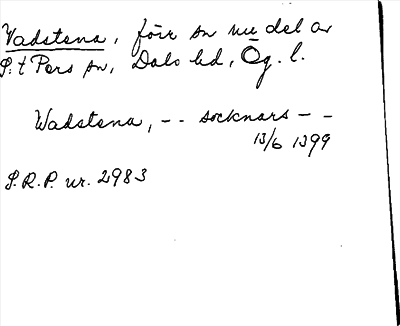 Vadstena, förr sn nu del av
S:t Pers sn, Dals hd, Ög. l.
Wadstena, -- socknars --
13/6 1399
S.R.P. nr. 2983